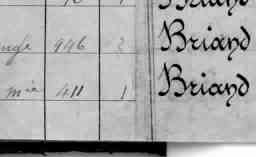 Briand
946 2 Briand
mie 411 1 Briand